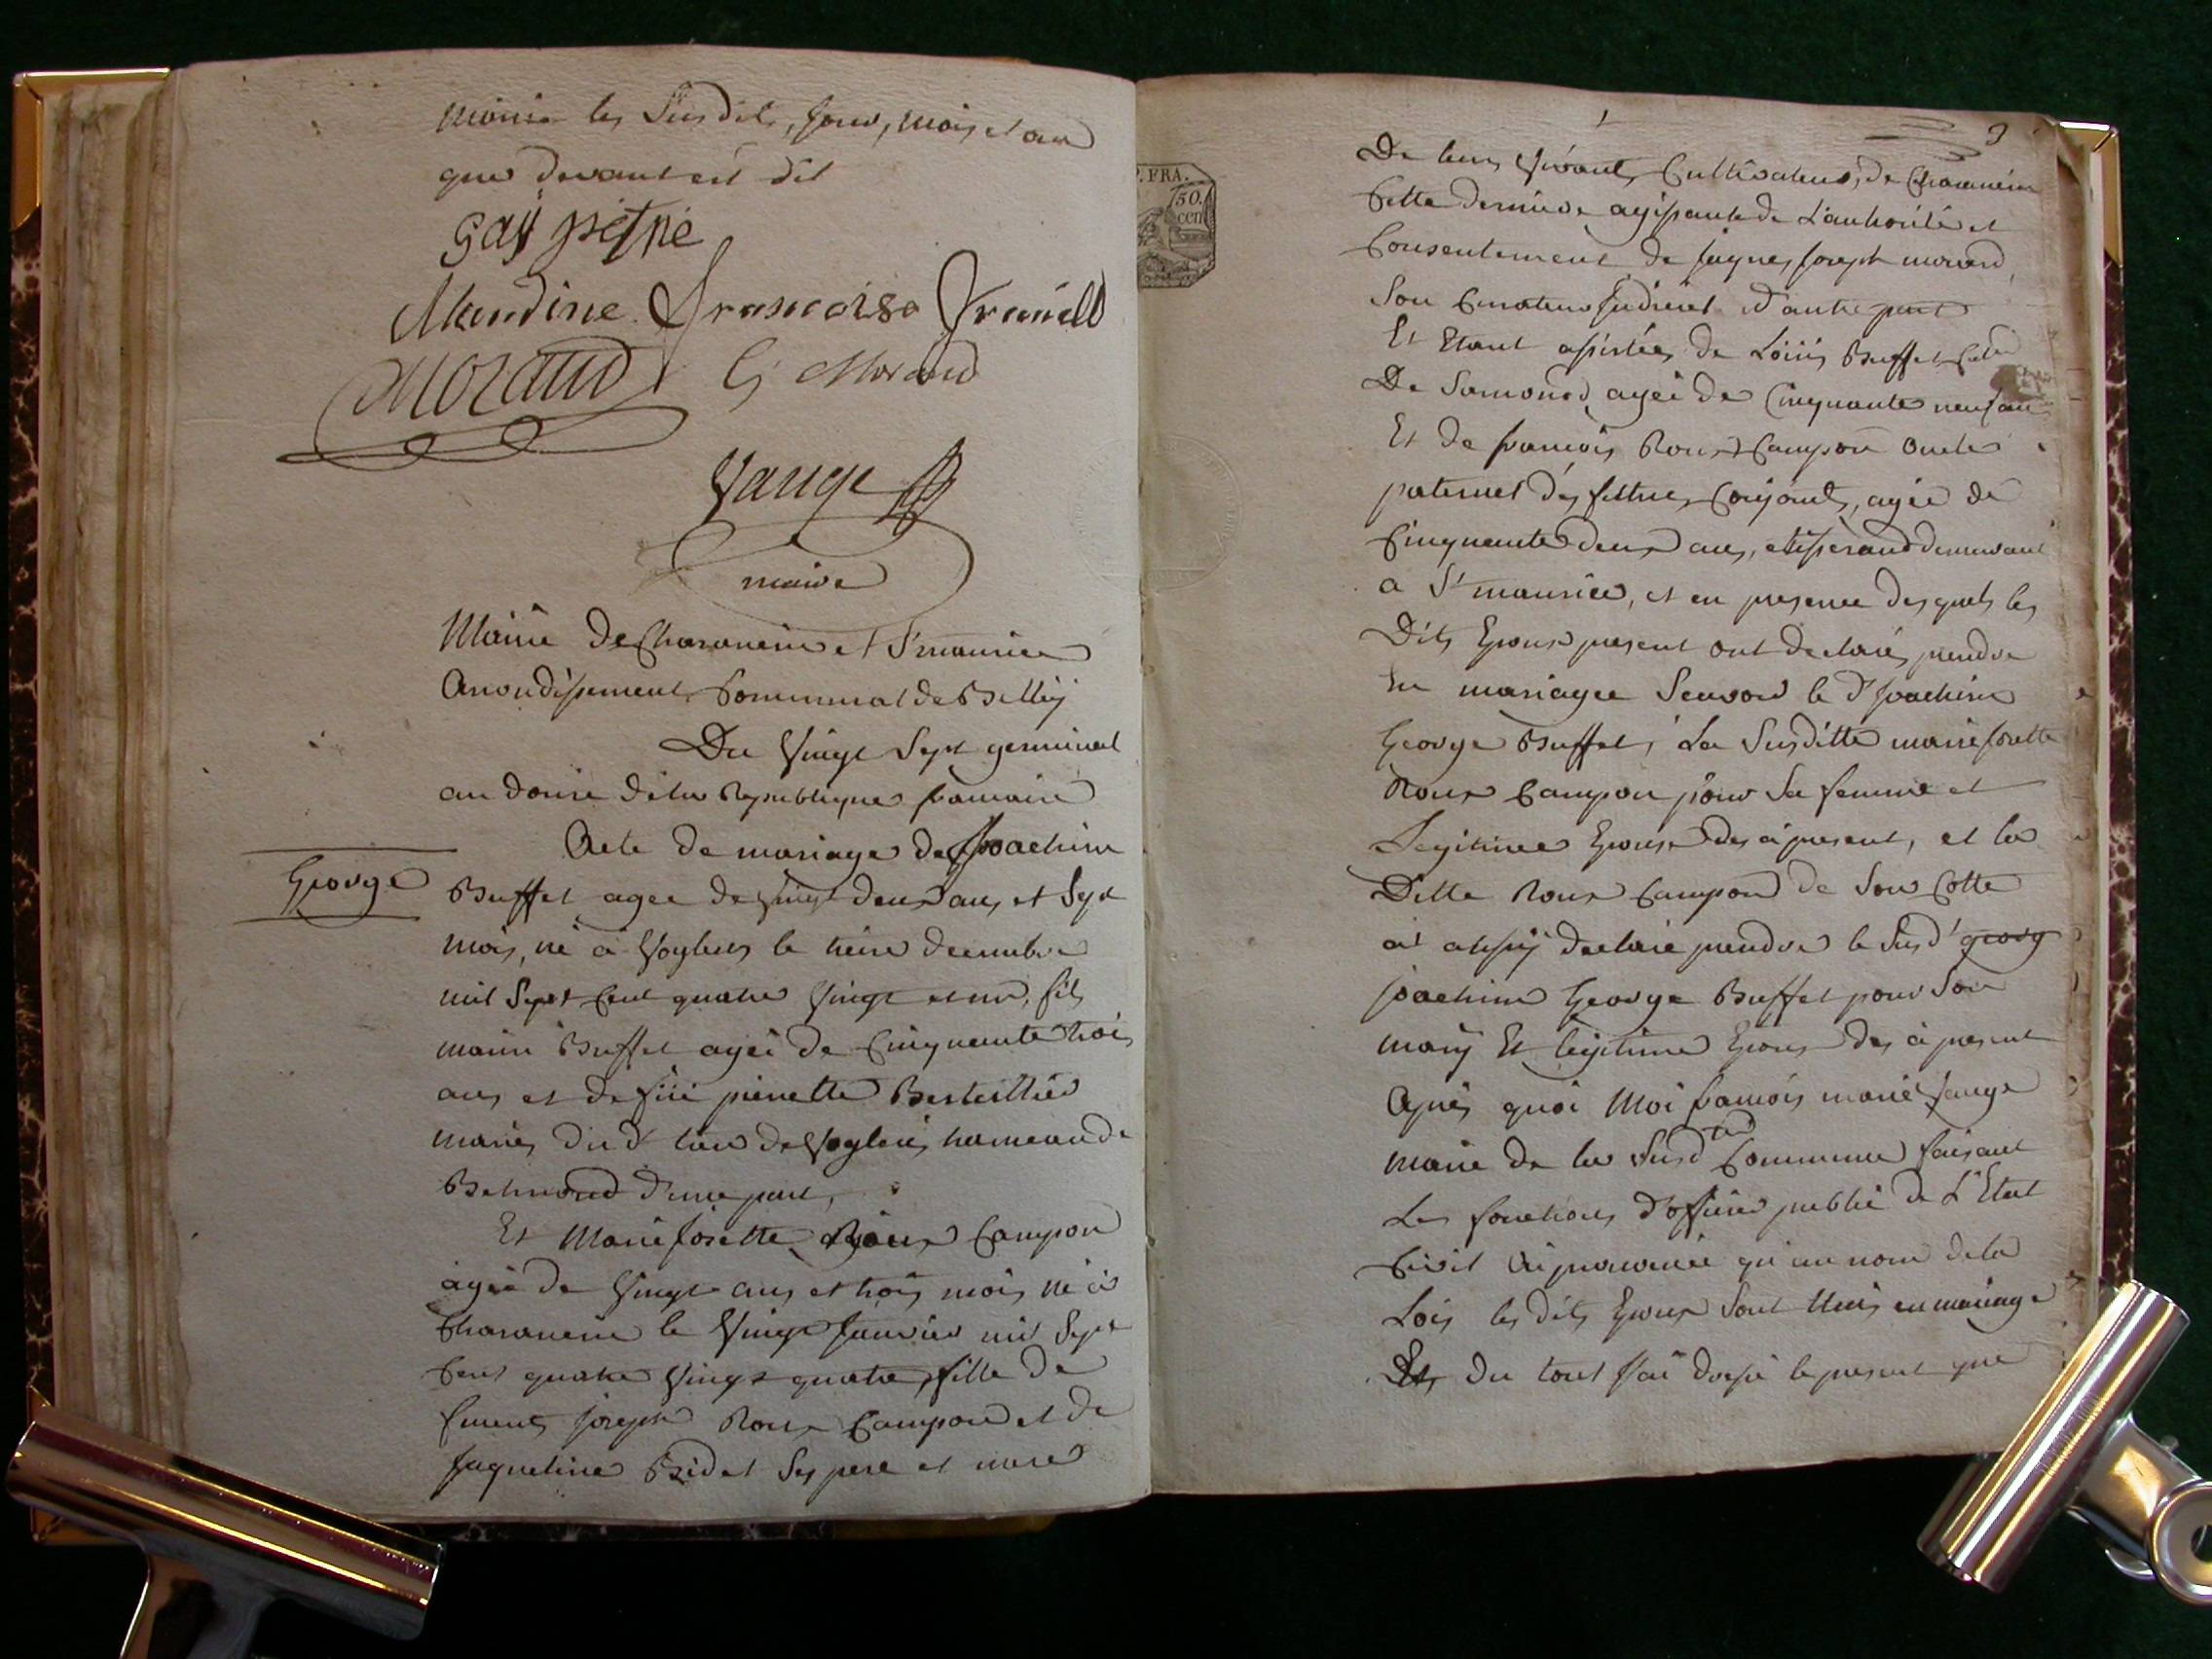 mairie les Susdits, jour, mois et an
que devant est dit
gay pierre
Claudine françoise
MORAUD G Moraud
Vauge
maire
Mairie De Charancin et St maurice
Arrondissement Communal de Belley
Du Vingt Sept germinal
an douze de la Republique francaise
Acte de mariage de Joachim
George
Buffet agee de Vingt deux ans et Sept
mois, né à le treize decembre
mil Sept Cent quatre Vingt et un, fils
Buffet agée de Cinquante trois
ans et de pierrette
mariés dud lieu de hameau de
Belmond d'une part,
Et Marie Josette Roux Campon
agée de Vingt ans et trois mois né à
Charancin le Vingt Janvier mil Sept
Cent quatre Vingt quatre, fille de
joseph Roux Campon et de
Jaqueline Bidet Ses pere et mere
P. FRA.
50.
cen
De leurs Vivants Cultivateurs, de Charancin
Cette derniere agissante de L'authorité et
Consentement de Jaques joseph
Son Curateur d'autre part
Et Etant assistées de Loüis Buffet
De agée de Cinquante neuf ans
Et de francois Roux Campon oncle
paternel des agée de
Cinquante deux ans, demeurant
a St maurice, et en presence desquels les
Dits Epoux present ont declarés prendre
en mariage Scavoir le dt Joachim
George Buffet, La Susditte marie Josette
Roux Campon pour Sa femme et
Legitime Epouse des à present, et la
Ditte Roux Campon de Son Cotte
à declaré prendre le Susdt georg
joachim George Buffet pour Son
mary Et legitime Epoux des à present
Après quoi Moi francois marie Vauge
maire de la Susd Commune faisant
Les fonctions d'officier public de L'Etat
Civil ai prononcé qu'au nom de la
Lois les dits Epoux Sont Unis en mariage
Et du tout j'ai dressé le present que